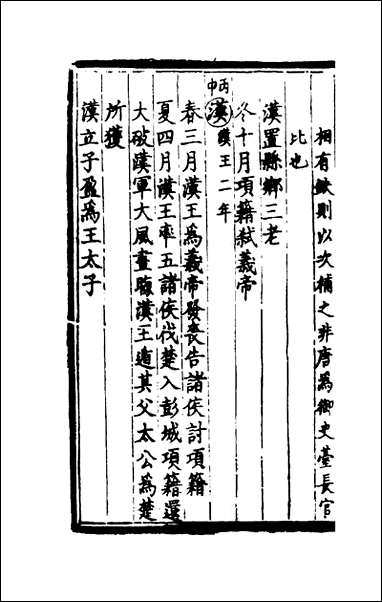 相有缺則以次補之非唐為御史臺長官
比也
漢置縣鄉三老
冬十月項籍弒義帝
丙申
漢 漢王二年
春三月漢王為義帝發喪告諸侯討項籍
夏四月漢王率五諸侯伐楚入彭城項籍還
大破漢軍大風晝晦漢王遁其父太公為楚
所獲
漢立子盈為王太子